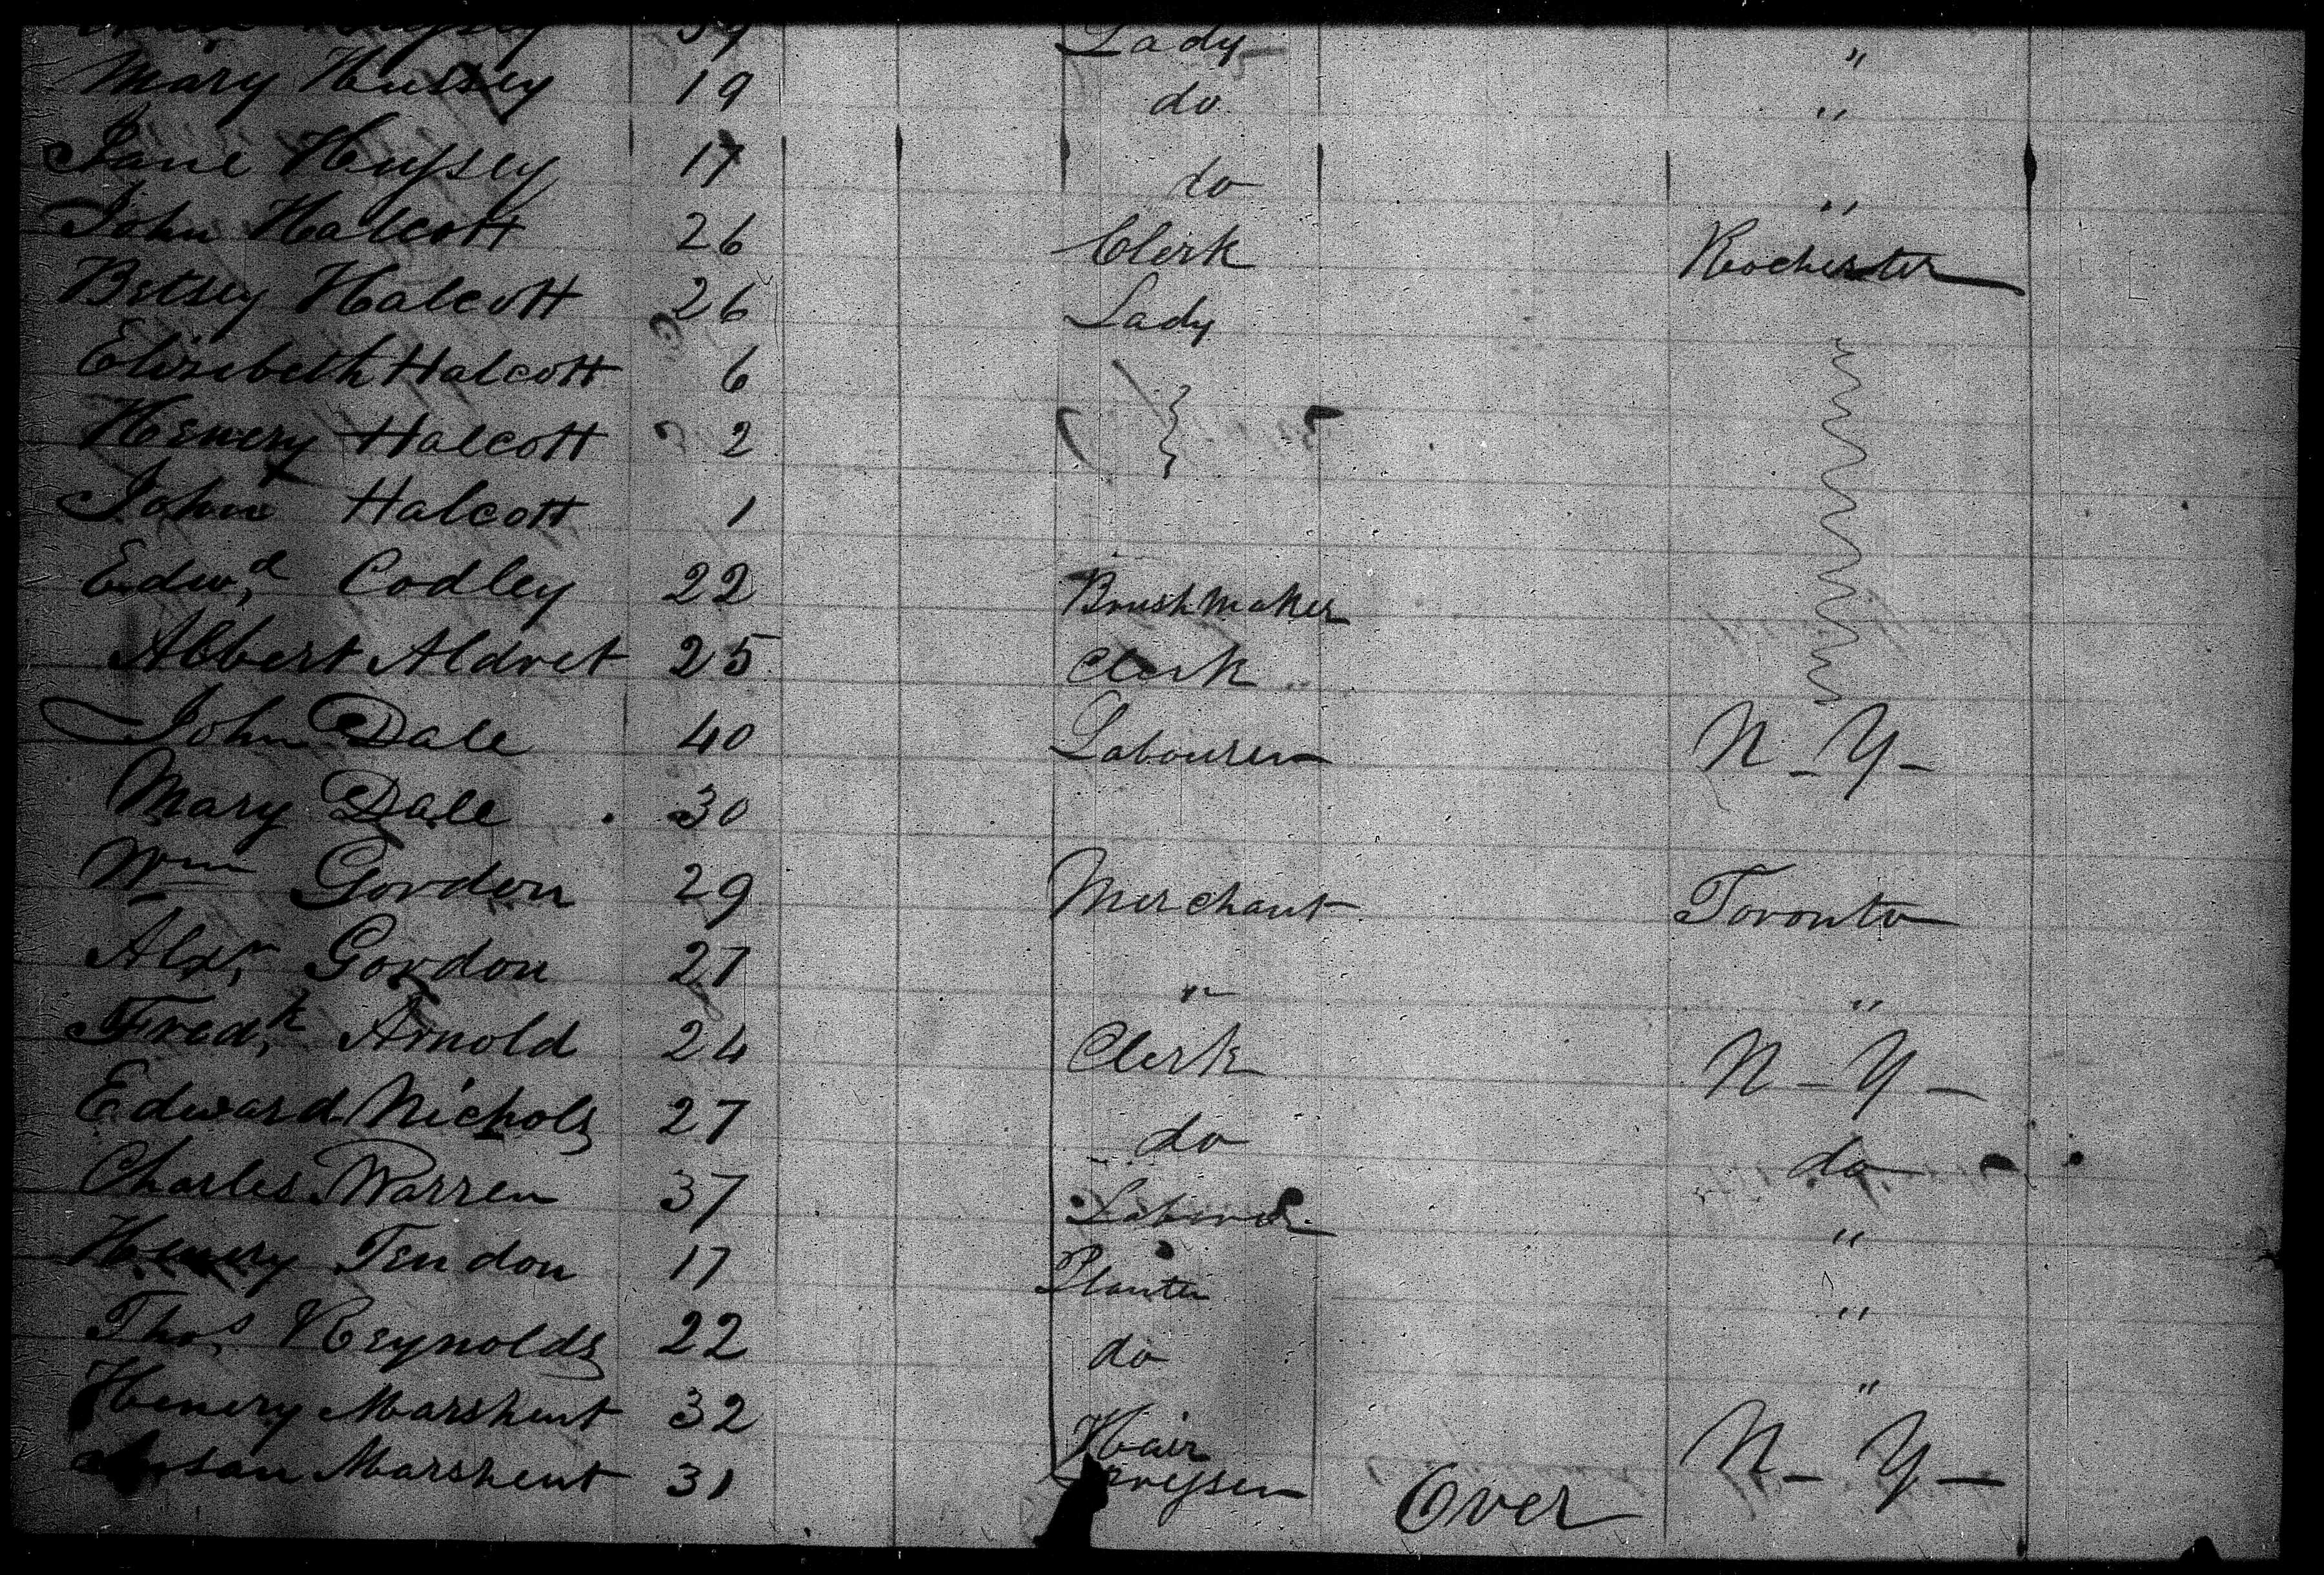 Lady "
Mary Hussey 19 do "
Jane Hussey 17 do "
John Halcott 26 Clerk Rochester
Betsey Halcott 26 Lady
Elizebeth Halcott 6
Henery Halcott 2
John Halcott 1
Edwd Codley 22 Brushmaker
Albert Aldret 25 Clerk
John Dale 40 Labourer N-Y-
Mary Dale 30
Wm Gordon 29 Merchant Toronto
Alexr Gordon 27 " "
Fredk Arnold 24 Clerk N-Y-
Edward Nichols 27 do do
Charles Warren 37 Laborer "
Henery Tendon 17 Planter "
Thos Reynolds 22 do "
Henery Marshent 32 Hair N-Y-
Susan Marshent 31 Dresser Over